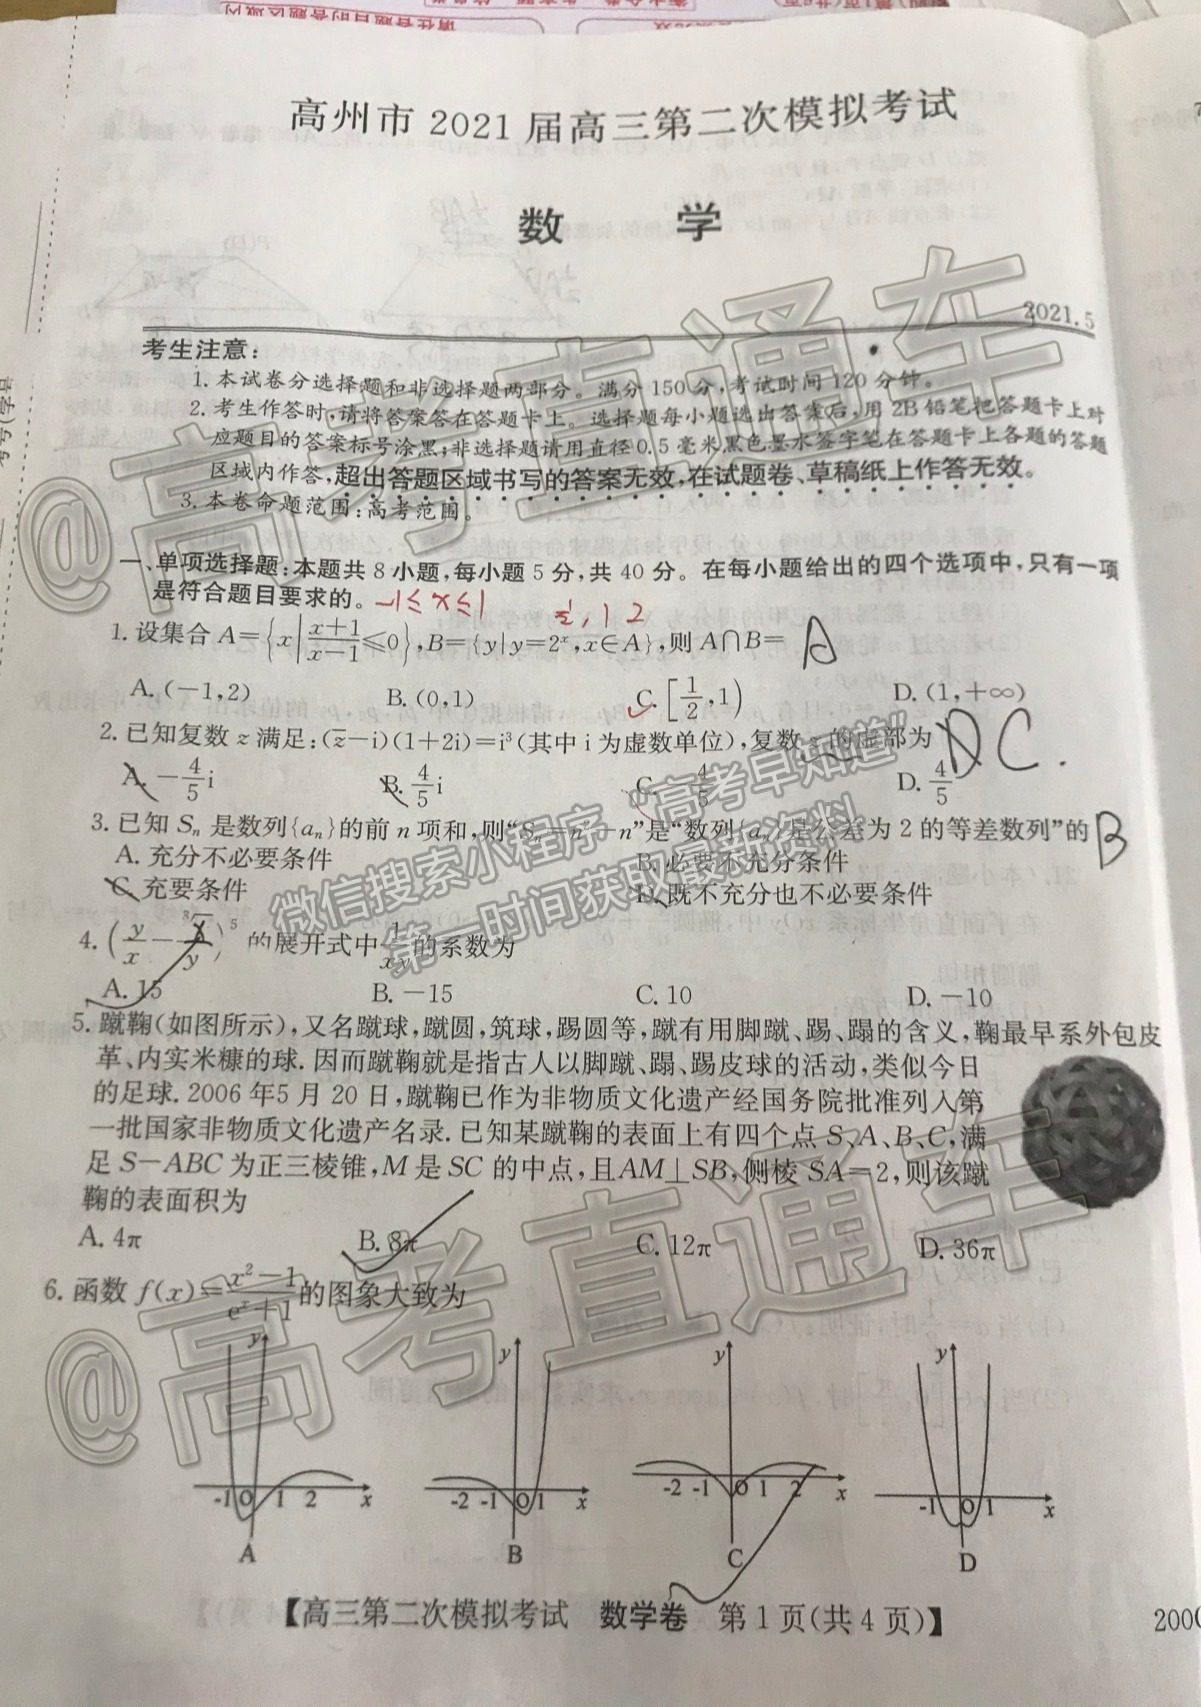 高州市 2021 届高三第二次模拟考试
数 学
2021.5
考生注意:
1. 本试卷分选择题和非选择题两部分。满分 150 分,考试时间 120 分钟。
2. 考生作答时,请将答案答在答题卡上。选择题每小题选出答案后,用 2B 铅笔把答题卡上对
应题目的答案标号涂黑;非选择题请用直径 0.5 毫米黑色墨水签字笔在答题卡上各题的答题
区域内作答,超出答题区域书写的答案无效,在试题卷、草稿纸上作答无效。
3. 本卷命题范围:高考范围。
一、单项选择题:本题共 8 小题,每小题 5 分,共 40 分。在每小题给出的四个选项中,只有一项
是符合题目要求的。 -1≤x≤1 ½, 1 2
1. 设集合 A={x|(x+1)/(x-1)≤0},B={y|y=2^x,x∈A},则 A∩B= A
A. (-1,2) B. (0,1) C. [1/2,1) D. (1,+∞)
2. 已知复数 z 满足:(z̄-i)(1+2i)=i³(其中 i 为虚数单位),复数 z 的虚部为 DC.
A. -4/5 i B. 4/5 i C. 4/5 D. 4/5
3. 已知 Sₙ 是数列{aₙ}的前 n 项和,则“Sₙ=n²-n”是“数列{aₙ}是公差为 2 的等差数列”的 B
A. 充分不必要条件 B. 必要不充分条件
C. 充要条件 D. 既不充分也不必要条件
4. 的展开式中 1/xy 的系数为
A. 15 B. -15 C. 10 D. -10
5. 蹴鞠(如图所示),又名蹴球,蹴圆,筑球,踢圆等,蹴有用脚蹴、踢、蹋的含义,鞠最早系外包皮
革、内实米糠的球. 因而蹴鞠就是指古人以脚蹴、蹋、踢皮球的活动,类似今日
的足球. 2006 年5 月 20 日,蹴鞠已作为非物质文化遗产经国务院批准列入第
一批国家非物质文化遗产名录. 已知某蹴鞠的表面上有四个点 S、A、B、C,满
足 S-ABC 为正三棱锥,M 是 SC 的中点,且AM⊥SB,侧棱 SA=2,则该蹴
鞠的表面积为
A. 4π B. 8π C. 12π D. 36π
6. 函数 f(x)=(x²-1)/(eˣ+1)的图象大致为
y y y y
-1 O 1 2 x -2 -1 O 1 x -2 -1 O 1 2 x -1 O 1 x
A B C D
【高三第二次模拟考试 数学卷 第 1 页(共 4 页)】
200
@高考直通车
微信搜索小程序“高考早知道”
第一时间获取最新资料
@高考直通车